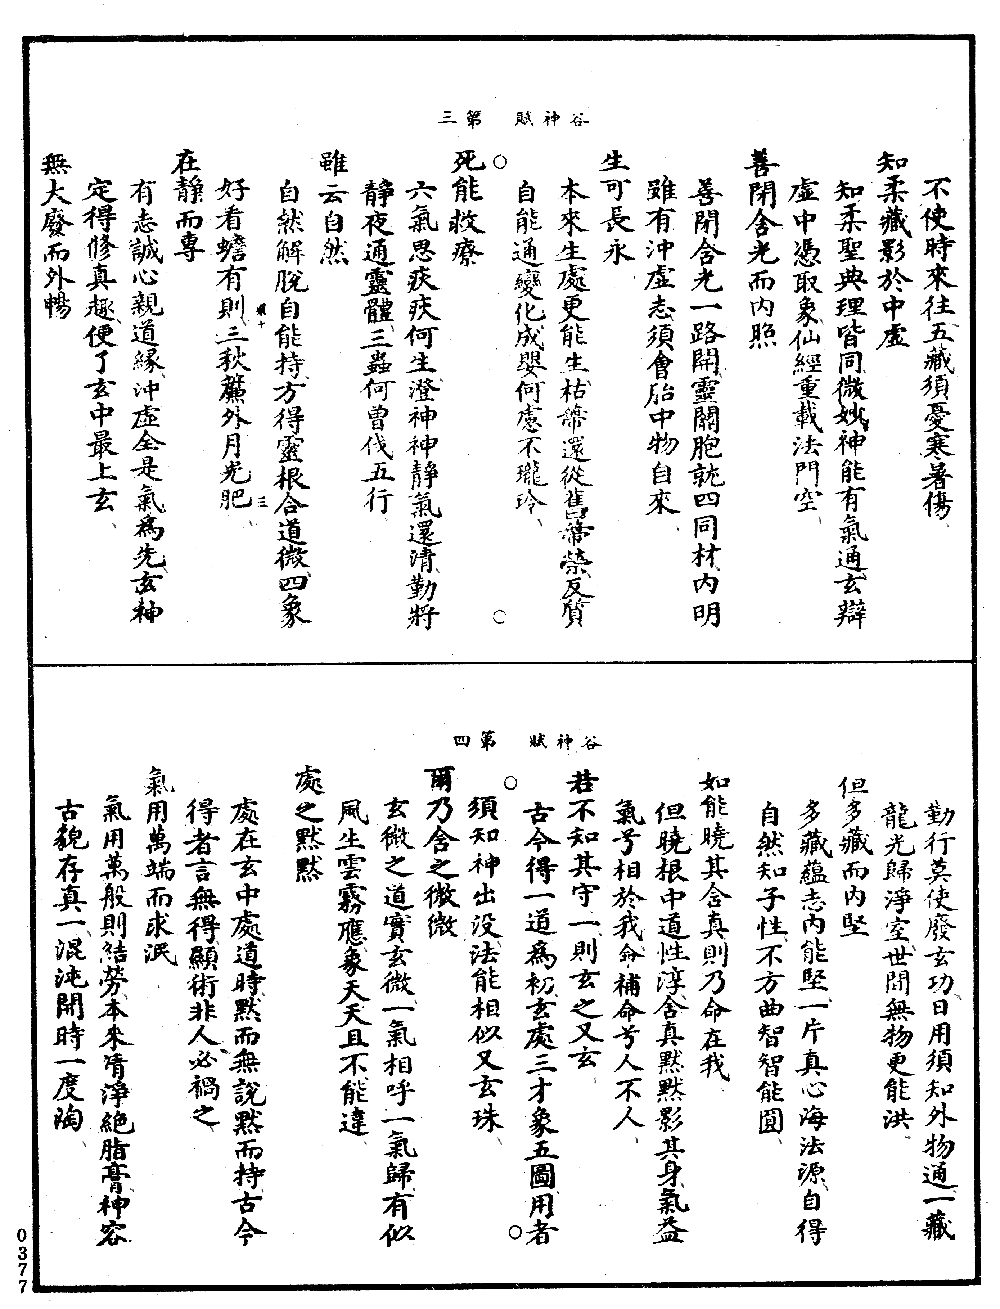 谷神賦　第三
不使時來往五藏須憂寒暑傷
知柔藏影於中虛
知柔聖典理皆同微妙神能有氣通玄辯
虛中憑取象仙經重載法門空
善閉含光而內照
善閉含光一路開靈關胞就四同材內明
雖有沖虛志須會胎中物自來
生可長永
本來生處更能生枯蒂還從舊蒂榮反質
自能通變化成嬰何慮不瓏玲
死能救療
六氣思疾疾何生澄神神靜氣還清勤將
靜夜通靈體三蟲何曾伐五行
雖云自然
自然解脫自能持方得靈根合道微四象
好看蟾有則三秋簾外月光肥
十　三
在靜而專
有志誠心親道緣沖虛全是氣為先玄神
定得修真趣便了玄中最上玄
無大廢而外暢
谷神賦　第四
勤行莫使廢玄功日用須知外物通一藏
龍光歸淨室世間無物更能洪
但多藏而內堅
多藏蘊志內能堅一片真心海法源自得
自然知子性不方曲智智能圓
如能曉其含真則乃命在我
但曉根中道性淳含真默默影其身氣益
氣兮相於我命補命兮人不人
若不知其守一則玄之又玄
古今得一道為初玄處三才象五圖用者
須知神出沒法能相似又玄珠
爾乃含之微微
玄微之道實玄微一氣相呼一氣歸有似
風生雲霧應象天天且不能違
處之默默
處在玄中處道時默而無說默而持古今
得者言無得顯術非人必禍之
氣用萬端而求泯
氣用萬般則結勞本來清淨絕脂膏神容
古貌存真一混沌開時一度陶
0377